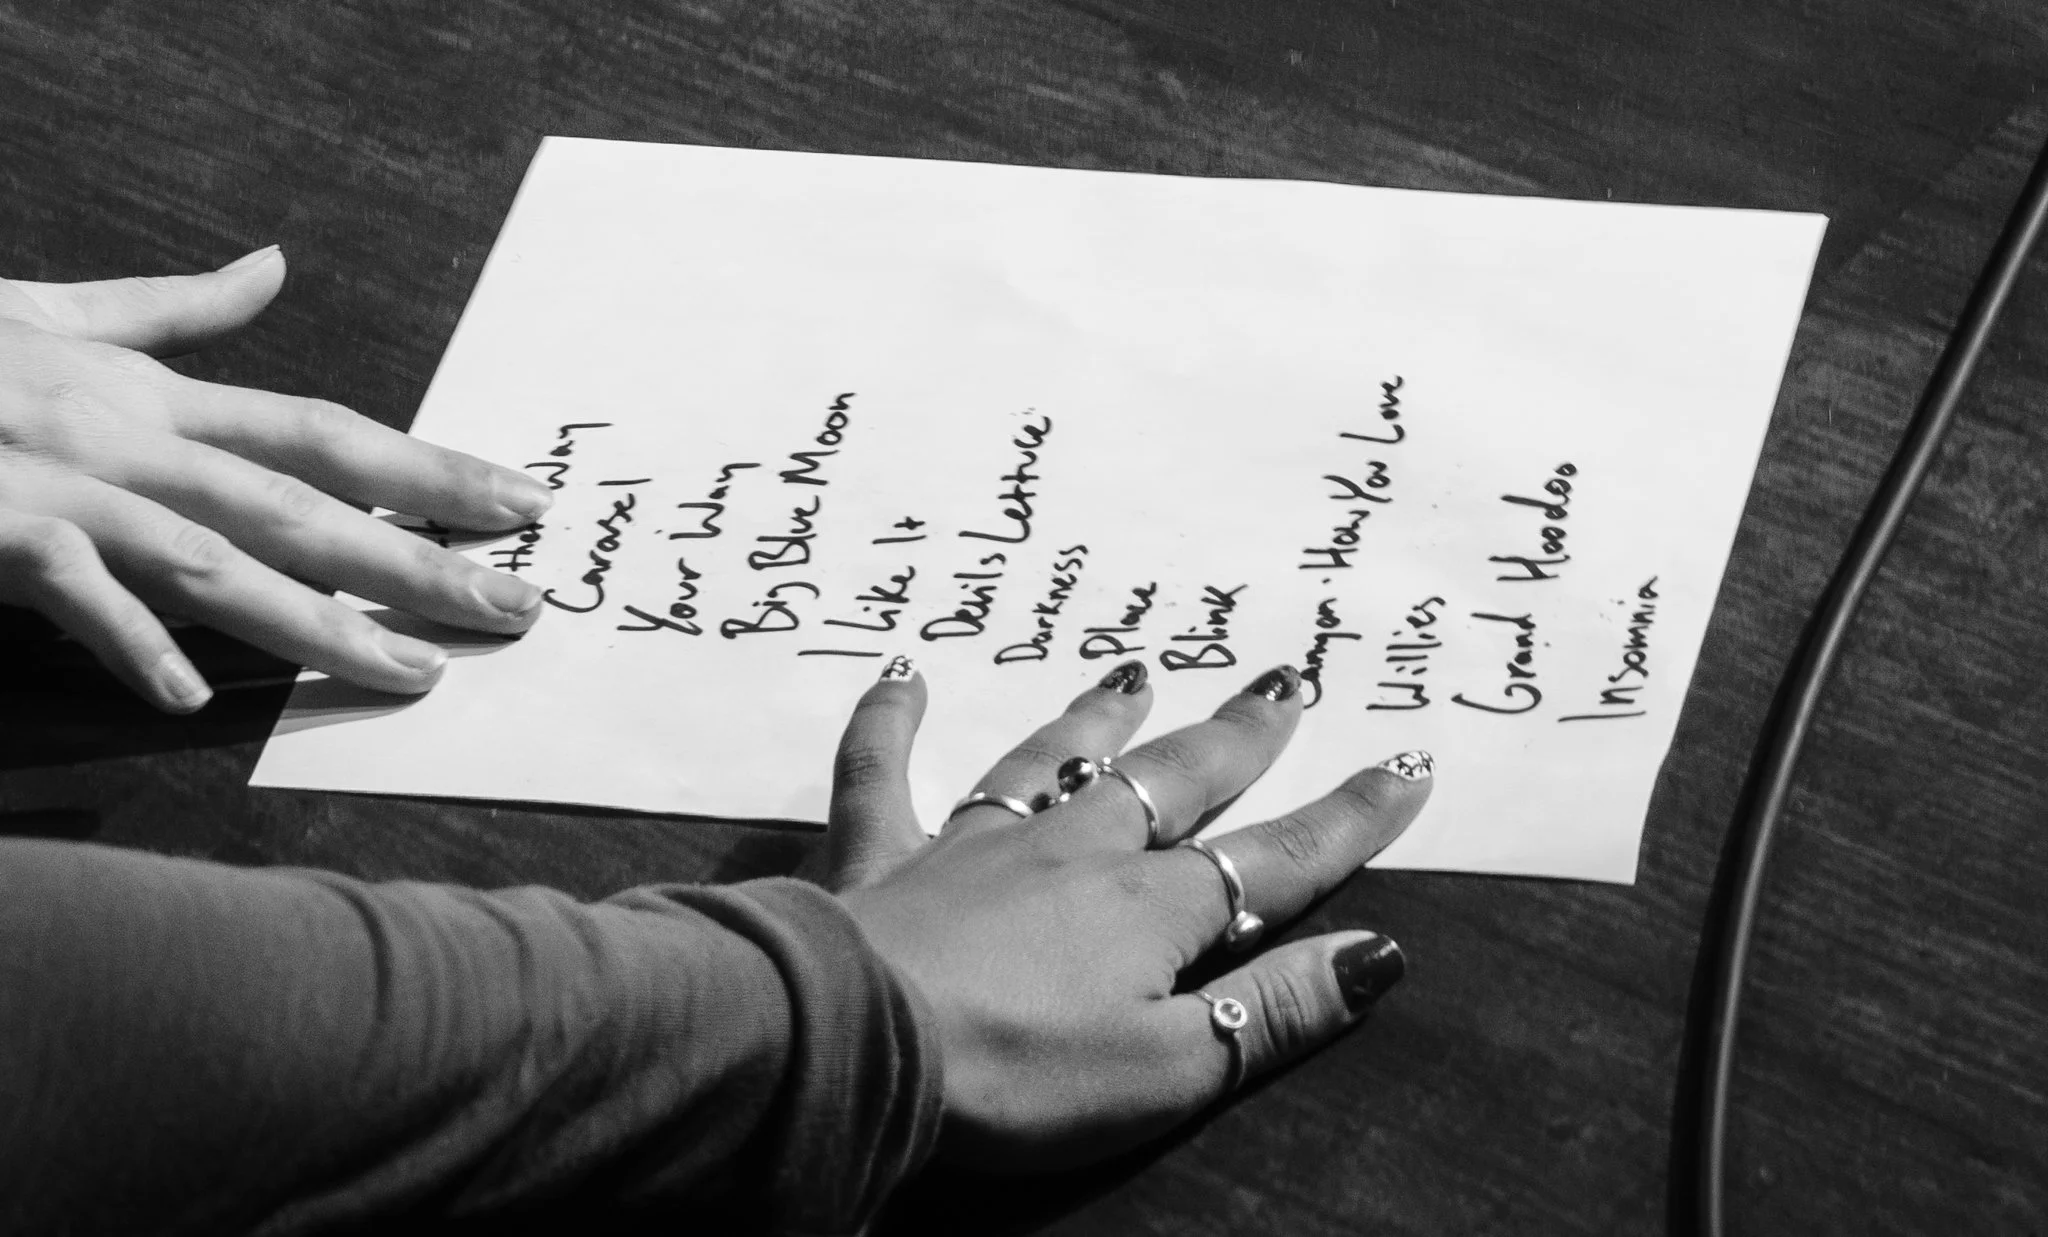 Way
Carousel
Your Way
Big Blue Moon
I Like It
Devils Lettuce
Darkness
Place
Blink
How You Love
Willies
Grand Hoodoo
Insomnia